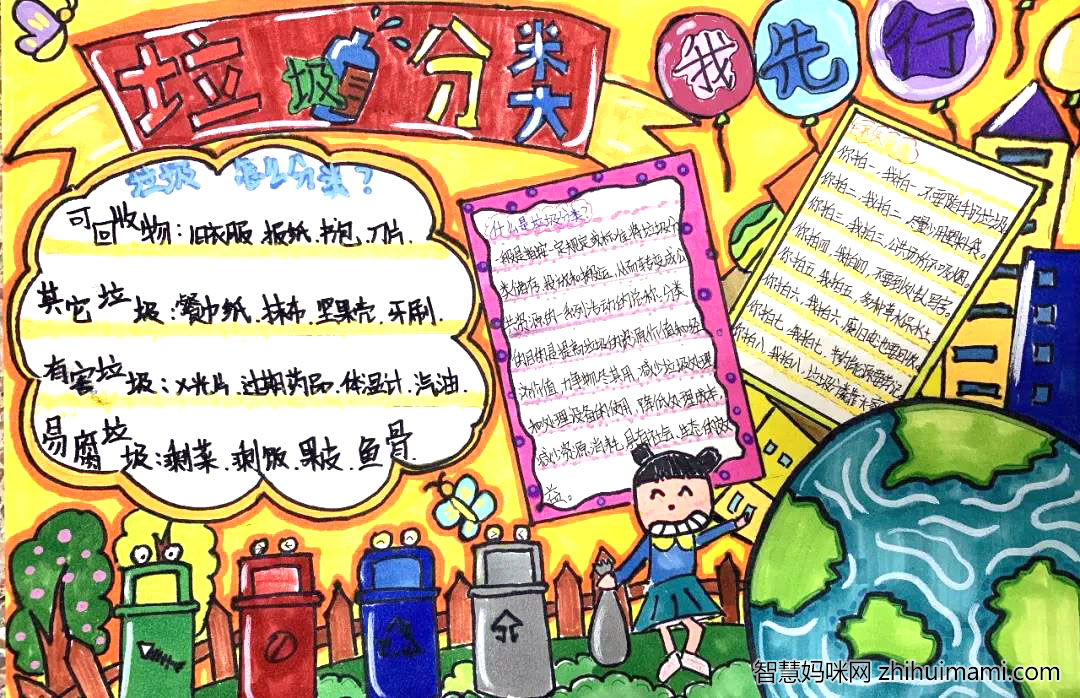 垃圾分类
我先行
垃圾怎么分类?
可回收物:旧衣服.报纸.书包.刀片.
其它垃圾:餐巾纸.抹布.坚果壳.牙刷.
有害垃圾:X光片.过期药品.体温计.汽油.
易腐垃圾:剩菜.剩饭.果皮.鱼骨.
什么是垃圾分类?
一般是指按一定规定或标准将垃圾分
类储存、投放和搬运,从而转变成公
共资源的一系列活动的总称.分类
的目的是提高垃圾的资源价值和经
济价值,力争物尽其用,减少垃圾处理
和处理设备的使用,降低处理成本,
减少资源消耗.具有社会、生态
益。
你拍一,我拍一,不要随手扔垃圾
你拍二,我拍二,尽量少用塑料袋。
你拍三,我拍三,公共场所不吸烟。
你拍四,我拍四,不要到处乱写字。
你拍五,我拍五,
你拍六,我拍六,废旧电池要回收。
你拍七,我拍七,节约能源要牢记
你拍八,我拍八,垃圾分类靠大家
智慧妈咪网 zhihuimami.com